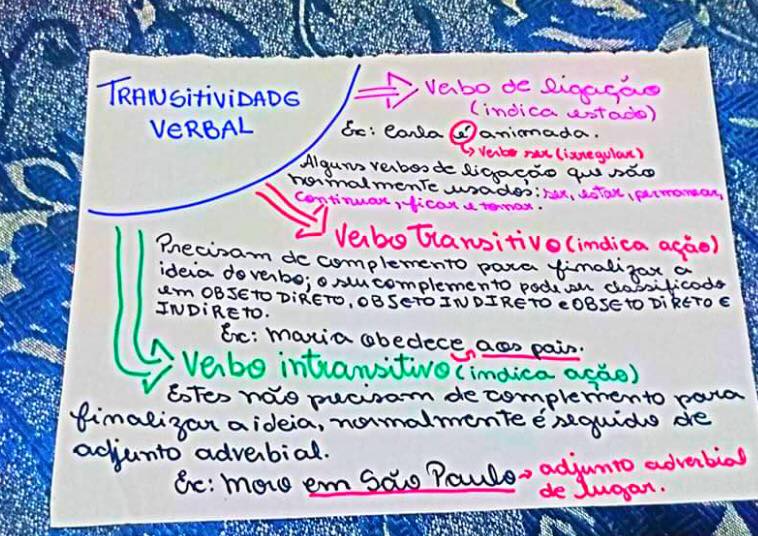 TRANSITIVIDADE
VERBAL
Verbo de ligação
(indica estado)
Ex: Carla é animada.
Verbo ser (irregular)
Alguns verbos de ligação que são
normalmente usados: ser, estar, permanecer,
continuar, ficar e tornar.
Verbo Transitivo (indica ação)
Precisam de complemento para finalizar a
ideia do verbo; o seu complemento pode ser classificado
em OBJETO DIRETO, OBJETO INDIRETO e OBJETO DIRETO E
INDIRETO.
Ex: Maria obedece aos pais.
Verbo intransitivo (indica ação)
Estes não precisam de complemento para
finalizar a ideia, normalmente é seguido de
adjunto adverbial.
Ex: Moro em São Paulo → adjunto adverbial
de lugar.